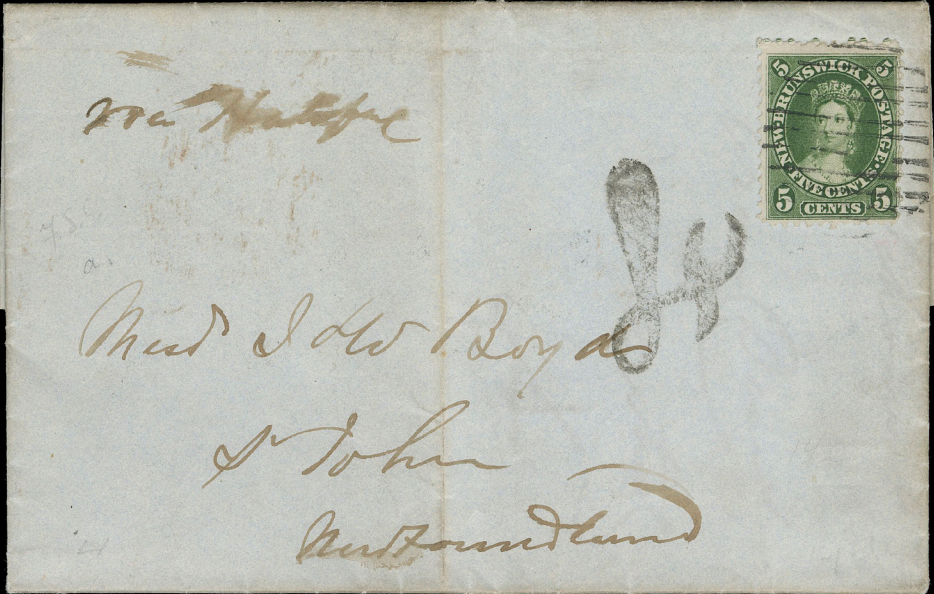 via Halifax
5 5
NEW·BRUNSWICK POSTAGE·
FIVE CENTS
5 CENTS 5
4
Messrs J & W Boyd
St John
Newfoundland